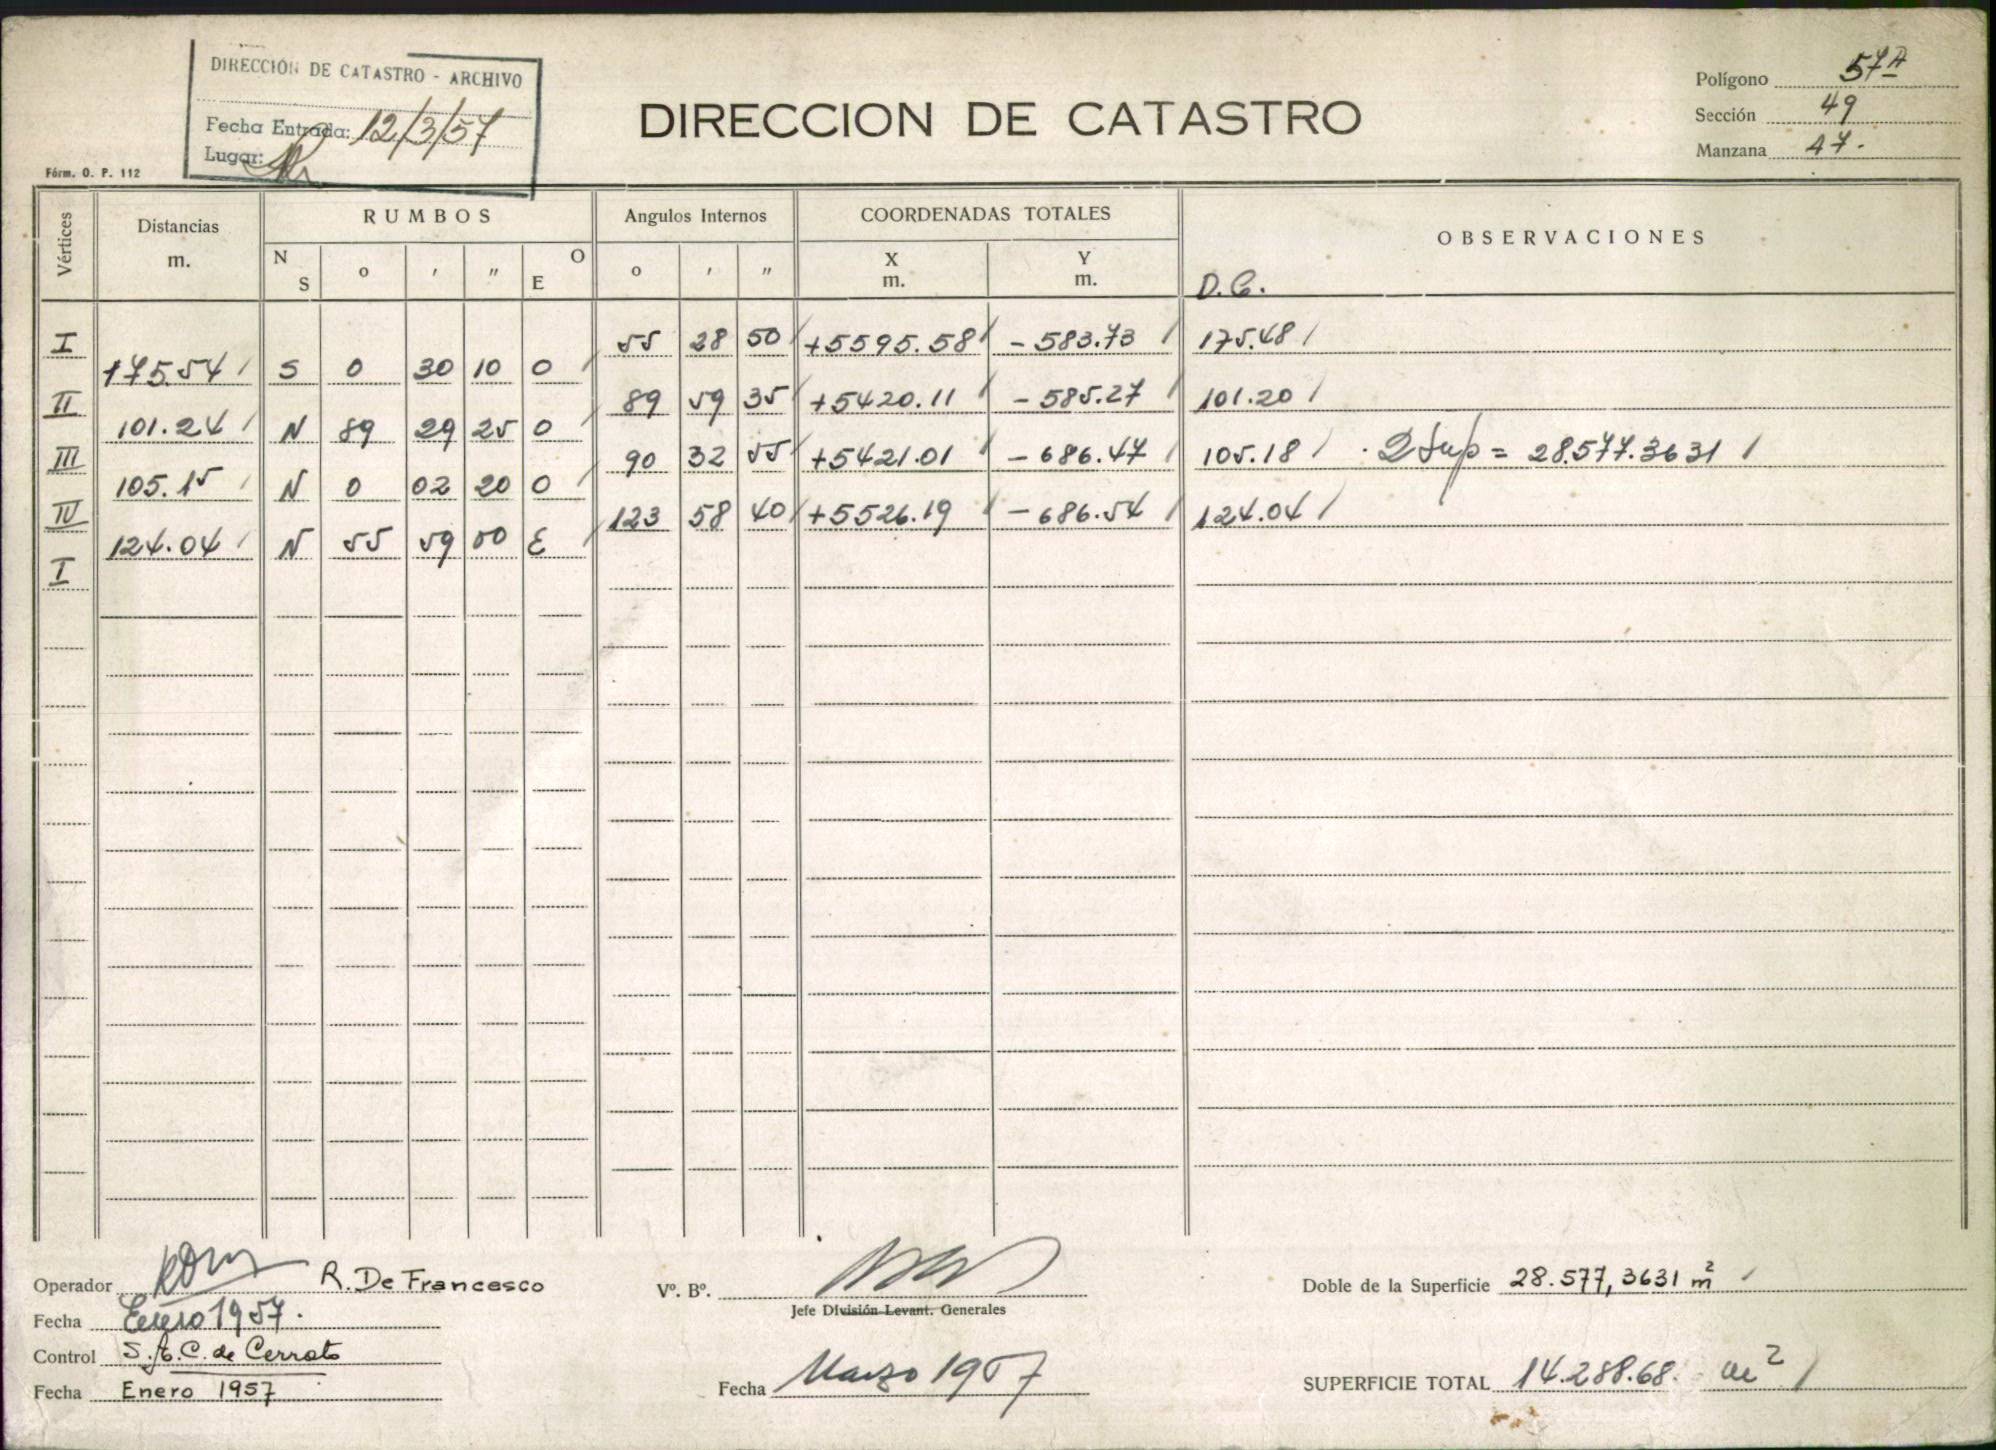 DIRECCIÓN DE CATASTRO - ARCHIVO
Fecha Entrada: 12/3/57
Lugar:
Fórm. O. P. 112
DIRECCION DE CATASTRO
Polígono 57A
Sección 49
Manzana 47.
Vértices Distancias m. RUMBOS Angulos Internos COORDENADAS TOTALES OBSERVACIONES
N S o ' " O E o ' " X m. Y m. D.C.
I 55 28 50 +5595.58 -583.73 175.48
175.54 S 0 30 10 O
II 89 59 35 +5420.11 -585.27 101.20
101.24 N 89 29 25 O
III 90 32 55 +5421.01 -686.47 105.18 . 2 Sup = 28.577.3631
105.15 N 0 02 20 O
IV 123 58 40 +5526.19 -686.54 124.04
124.04 N 55 59 00 E
I
Operador R. De Francesco
Fecha Enero 1957.
Control S.A.C. de Cerrato
Fecha Enero 1957
Vº. Bº.
Jefe División Levant. Generales
Fecha Marzo 1957
Doble de la Superficie 28.577,3631 m²
SUPERFICIE TOTAL 14.288.68. m²